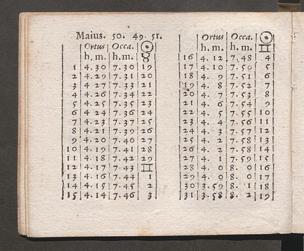 Maius. 50. 49. 51.
Ortus | Occa. | ☉
h. m. | h. m. | ♉
1 | 4. 30 | 7. 30 | 19
2 | 4. 29 | 7. 31 | 20
3 | 4. 27 | 7. 33 | 21
4 | 4. 26 | 7. 34 | 22
5 | 4. 25 | 7. 35 | 23
6 | 4. 24 | 7. 36 | 24
7 | 4. 23 | 7. 37 | 25
8 | 4. 21 | 7. 39 | 26
9 | 4. 20 | 7. 40 | 27
10 | 4. 19 | 7. 41 | 28
11 | 4. 18 | 7. 42 | 29
12 | 4. 17 | 7. 43 | ♊
13 | 4. 16 | 7. 44 | 1
14 | 4. 15 | 7. 45 | 2
15 | 4. 14 | 7. 46 | 3
Ortus | Occa. | ☉
h. m. | h. m. | ♊
16 | 4. 12 | 7. 48 | 4
17 | 4. 10 | 7. 50 | 5
18 | 4. 9 | 7. 51 | 6
19 | 4. 8 | 7. 52 | 7
20 | 4. 7 | 7. 53 | 8
21 | 4. 6 | 7. 54 | 9
22 | 4. 5 | 7. 55 | 10
23 | 4. 4 | 7. 56 | 11
24 | 4. 3 | 7. 57 | 12
25 | 4. 3 | 7. 57 | 13
26 | 4. 2 | 7. 58 | 14
27 | 4. 1 | 7. 59 | 15
28 | 4. 0 | 8. 0 | 16
29 | 4. 0 | 8. 0 | 17
30 | 3. 59 | 8. 1 | 18
31 | 3. 58 | 8. 2 | 19